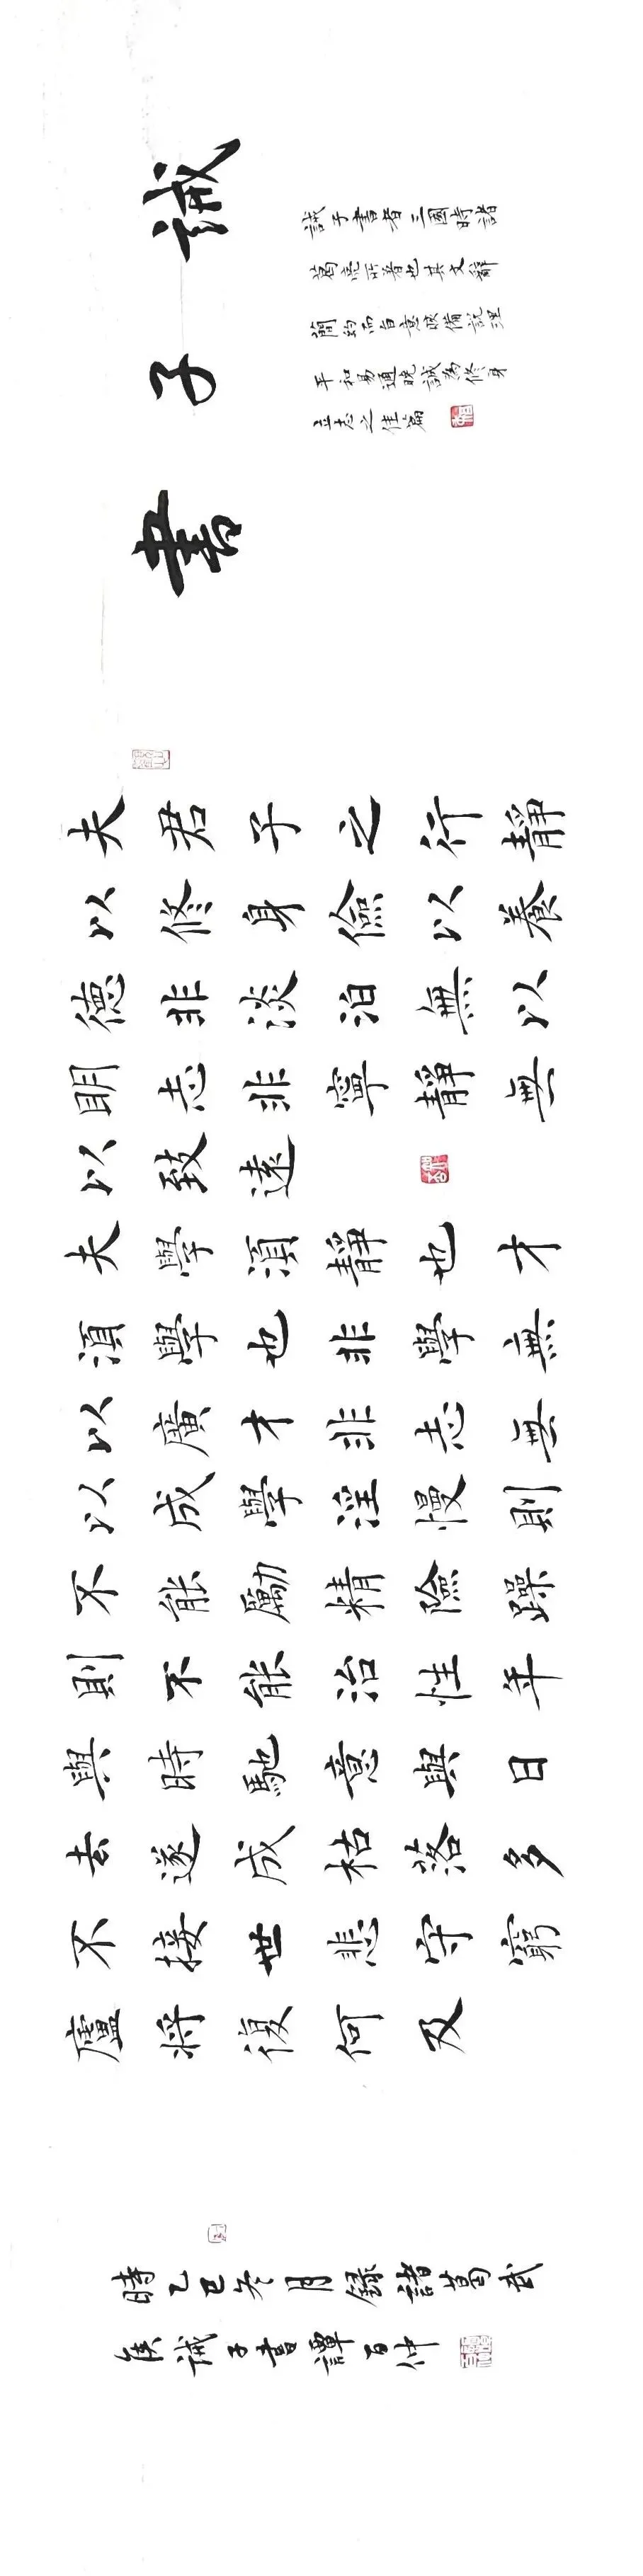 誡子書
誡子書者三國時諸
葛亮所著也其文辭
簡約而旨意賅備說理
平和易通曉誠為修身
立志之佳篇
夫君子之行靜
以修身儉以養
德非淡泊無以
明志非寧靜無
以致遠
夫學須靜也才
須學也非學無
以廣才非志無
以成學淫慢則
不能勵精險躁
則不能治性年
與時馳意與日
去遂成枯落多
不接世悲守窮
廬將復何及
時乙巳冬月錄諸葛武
侯誡子書譚百仲